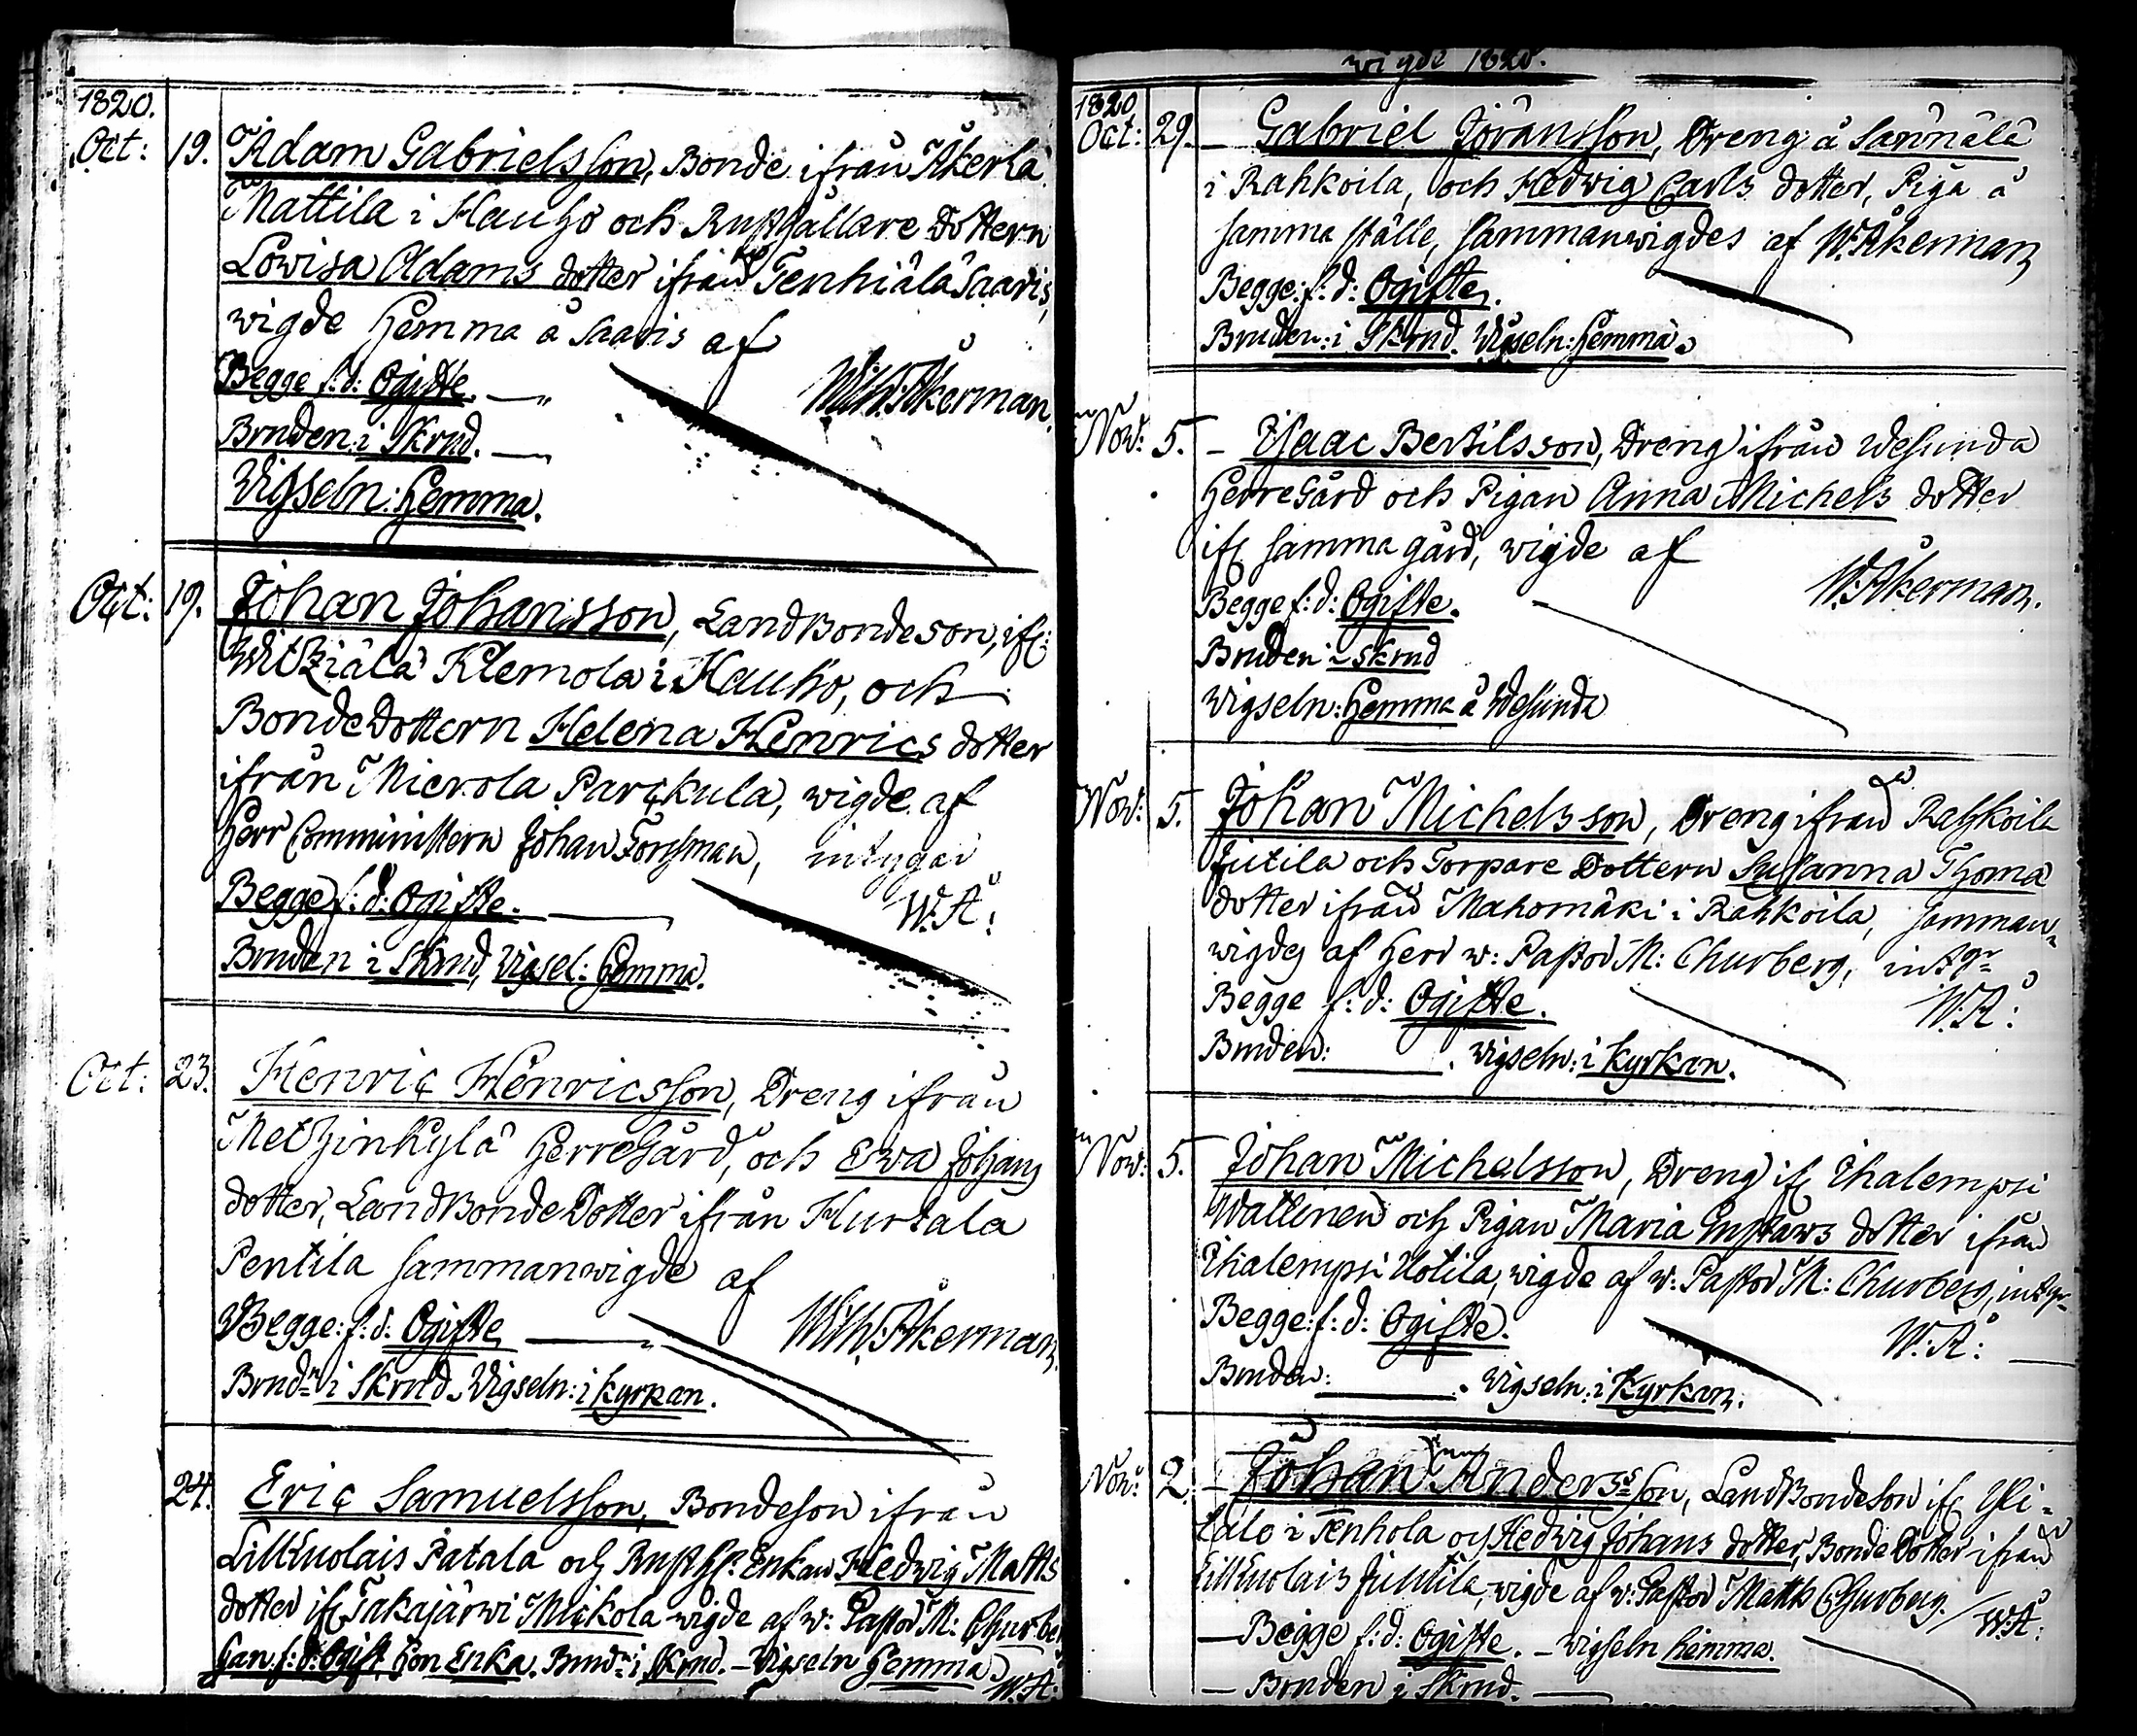 1820.
Oct: 19. Adam Gabrielsson, Bonde ifrån Åkerla
Mattila i Hauho och Rusthållare Dottern
Lowisa Adams dotter ifrån Tenhiälä Saaris,
wigde hemma å Saaris af
Wilh: Åkerman.
Begge f: d: Ogifte.
Bruden: i Skrud.
Vigseln: hemma.
Oct: 19. Johan Johansson, Landbondeson, ifr:
Witziälä Klemola i Hauho, och
BondeDottern Helena Henrics dotter
ifrån Mierola Parckula, wigde af
Herr Comministern Johan Forssman, intygar
W. Å:
Begge f: d: Ogifte.
Bruden i Skrud, Vigsel: hemma.
Oct: 23. Henric Henricsson, Dreng ifrån
Metzinkylä HerreGård, och Ewa Johans
dotter, LandBonde Dotter ifrån Hurtala
Pentila sammanwigde af
Wilh: Åkerman
Begge: f: d: Ogifte
Brudn i Skrud. Vigseln: i kyrkan.
24. Eric Samuelsson, Bondeson ifrån
LillKuolais Patala och Rusth: Enkan Hedwig Matts
dotter ifr Takajärwi Mickola wigde af w: Pastor M: Churberg
han f: d: Ogift hon Enka. Brudn i Skrud. – Vigseln hemma
W. Å:
wigde 1820.
1820
Oct: 29. – Gabriel Göransson, Dreng å Sannälä
i Rahkoila, och Hedwig Carls dotter, Piga å
samma ställe, sammanwigdes af W: Åkerman
Begge: f: d: Ogifte.
Bruden: i Skrud. Vigseln: hemma.
Now: 5. – Isaac Bertilsson, Dreng ifrån Wesunda
HerreGård och Pigan Anna Michels dotter
ifr samma gård, wigde af
W. Åkerman.
Begge f: d: Ogifte.
Bruden i skrud
Vigseln: hemma å Wesunda
Now: 5. Johan Michelsson, Dreng ifrån Rahkoila
Jutila och Torpare Dottern Susanna Thoma
dotter ifrån Mahomäki i Rahkoila, samman-
wigdes af Herr w: Pastor M: Churberg, intgr
W. Å:
Begge f: d: Ogifte.
Bruden: . Vigseln: i Kyrkan.
Now: 5. Johan Michelsson, Dreng ifr Ihalempsi
Wallinen och Pigan Maria Gustaws dotter ifrån
Ihalempsi Uotila, wigde af w: Pastor M: Churberg, intgr
W. Å:
Begge: f: d: Ogifte.
Bruden: . Vigseln: i Kyrkan.
Nov: 2. – Johan Andersson, LandBondeson ifr Yli-
talo i Tenhola och Hedwig Johans dotter, Bonde Dotter ifrån
LillKuolais Juutila, wigde af w: Pastor Matth Churberg.
W. Å:
– Begge f: d: Ogifte. – Vigseln hemma.
– Bruden i Skrud.